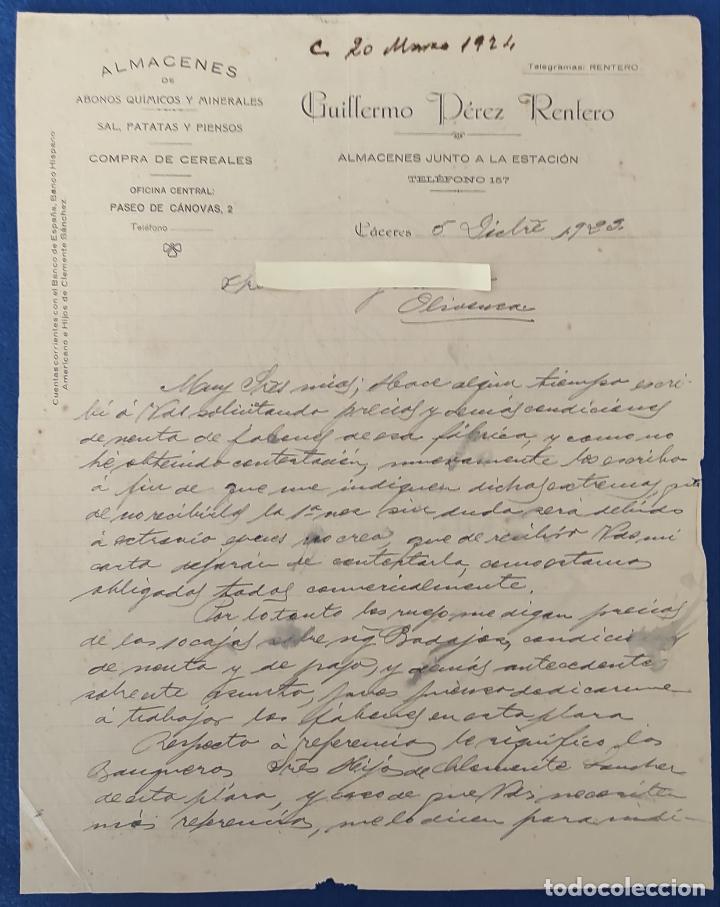 C. 20 Marzo 1924
ALMACENES
DE
ABONOS QUÍMICOS Y MINERALES
SAL, PATATAS Y PIENSOS
COMPRA DE CEREALES
OFICINA CENTRAL:
PASEO DE CÁNOVAS, 2
Teléfono
Cuentas corrientes con el Banco de España, Banco Hispano
Americano e Hijos de Clemente Sánchez
Telegramas: RENTERO
Guillermo Pérez Rentero
ALMACENES JUNTO A LA ESTACIÓN
TELÉFONO 157
Cáceres 5 Dicbre 1923
Olivenza
Muy Sres mios; Hace algun tiempo escri
bí á Vds solicitando precios y demás condiciones
de venta de jabones de esa fábrica, y como no
hé obtenido contestación, nuevamente les escribo
á fin de que me indiquen dichos extremos,
de no recibirles la 1ª vez sin duda será debido
á extravio pues no creo que de recibir Vds mi
carta dejarán de contestarla, como estamos
obligados todos comercialmente.
Por lo tanto les ruego me digan precios
de las 10 cajas sobre vg Badajoz, condicio
de venta y de pago, y demás antecedentes
sobre este asunto, pues pienso dedicarme
á trabajar los jabones en esta plaza
Respecto á referencias le significo los
Banqueros Sres Hijos de Clemente Sanchez
de esta plaza, y caso de que Vds necesiten
más referencias, me lo dicen para indi-
todocoleccion.net